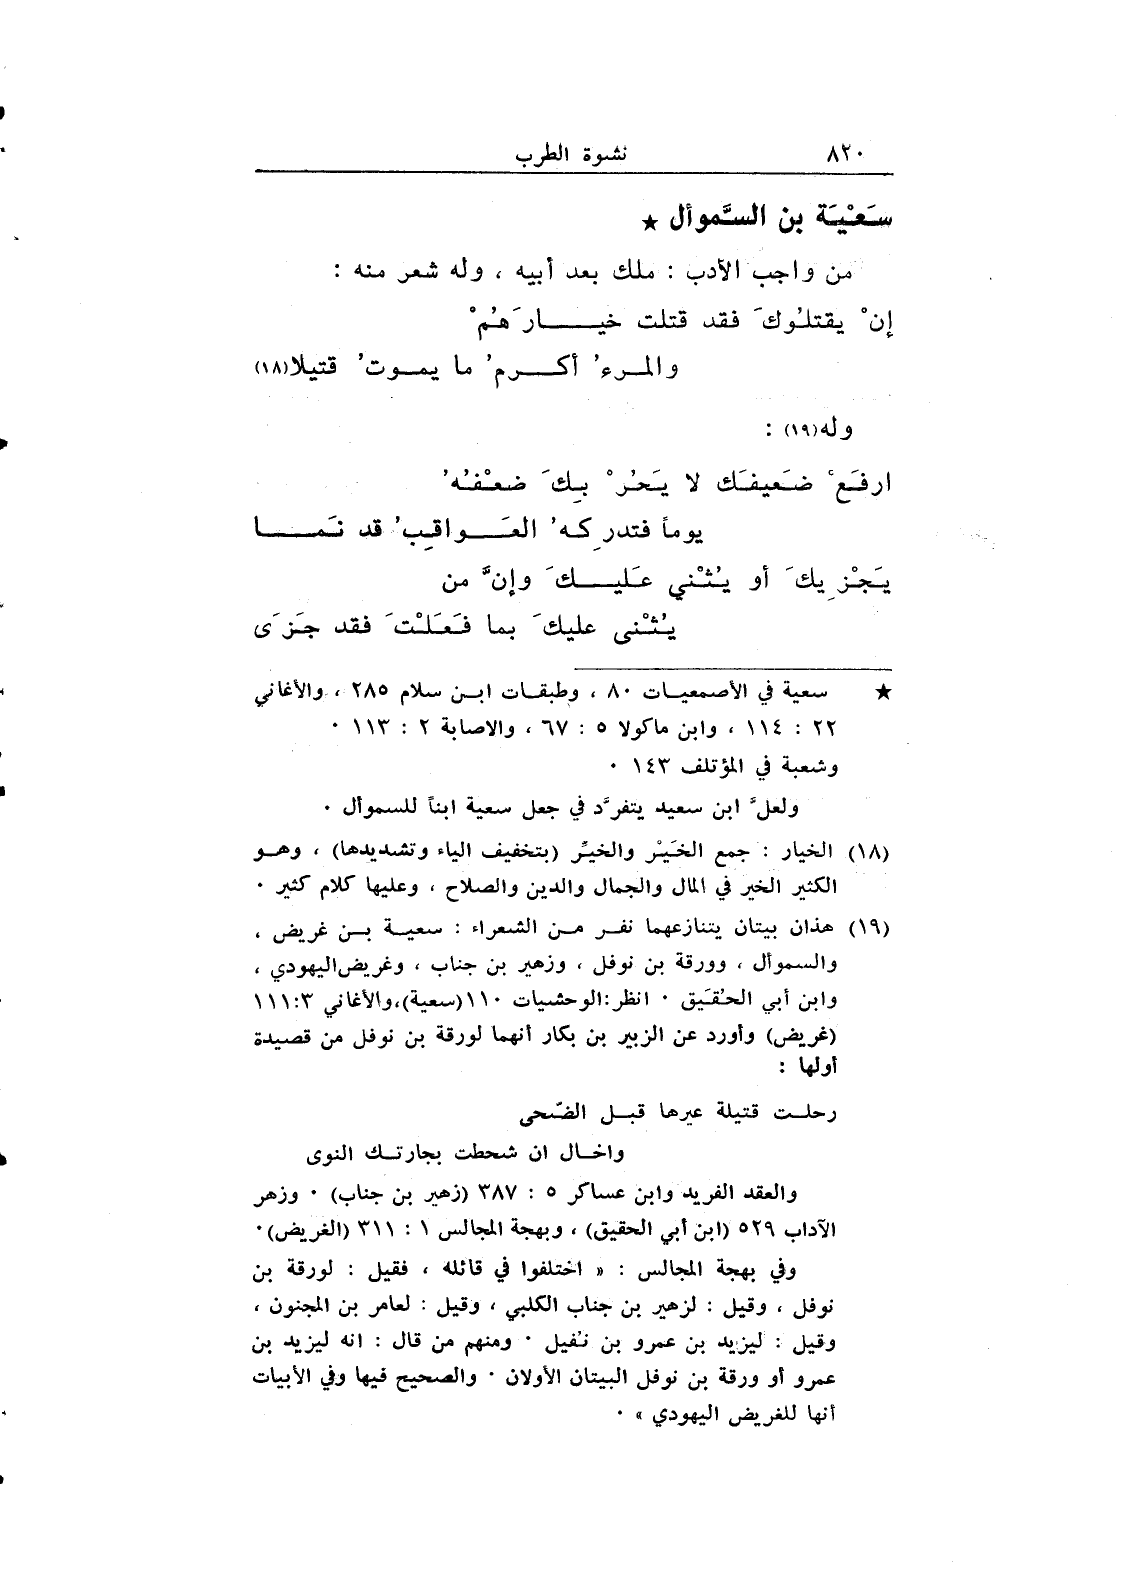 ٨٢٠ نشوة الطرب
سَعْيَة بن السَّموأل ★
من واجب الأدب : ملك بعد أبيه ، وله شعر منه :
إنْ يقتلُوكَ فقد قتلت خيارَهُمْ
والمرءُ أكرمُ ما يموتُ قتيلا(١٨)
وله(١٩) :
ارفَعْ ضَعيفَك لا يَحُرْ بِكَ ضعْفُهُ
يوماً فتدرِكهُ العَواقِبُ قد نَمَا
يَجْزِيكَ أو يُثْني عَليكَ وإنَّ من
يُثْنى عليكَ بما فَعَلْتَ فقد جَزَى
★ سعية في الأصمعيات ٨٠ ، وطبقات ابن سلام ٢٨٥ ، والأغاني
٢٢ : ١١٤ ، وابن ماكولا ٥ : ٦٧ ، والاصابة ٢ : ١١٣ ·
وشعبة في المؤتلف ١٤٣ ·
ولعلَّ ابن سعيد يتفرَّد في جعل سعية ابناً للسموأل ·
(١٨) الخيار : جمع الخَيْر والخيِّر (بتخفيف الياء وتشديدها) ، وهو
الكثير الخير في المال والجمال والدين والصلاح ، وعليها كلام كثير ·
(١٩) هذان بيتان يتنازعهما نفر من الشعراء : سعية بن غريض ،
والسموأل ، وورقة بن نوفل ، وزهير بن جناب ، وغريض اليهودي ،
وابن أبي الحُقَيق · انظر:الوحشيات ١١٠(سعية)،والأغاني ١١١:٣
(غريض) وأورد عن الزبير بن بكار أنهما لورقة بن نوفل من قصيدة
أولها :
رحلت قتيلة عيرها قبل الضّحى
واخال ان شحطت بجارتك النوى
والعقد الفريد وابن عساكر ٥ : ٣٨٧ (زهير بن جناب) · وزهر
الآداب ٥٢٩ (ابن أبي الحقيق) ، وبهجة المجالس ١ : ٣١١ (الغريض)·
وفي بهجة المجالس : « اختلفوا في قائله ، فقيل : لورقة بن
نوفل ، وقيل : لزهير بن جناب الكلبي ، وقيل : لعامر بن المجنون ،
وقيل : ليزيد بن عمرو بن نُفيل · ومنهم من قال : انه ليزيد بن
عمرو أو ورقة بن نوفل البيتان الأولان · والصحيح فيها وفي الأبيات
أنها للغريض اليهودي » ·